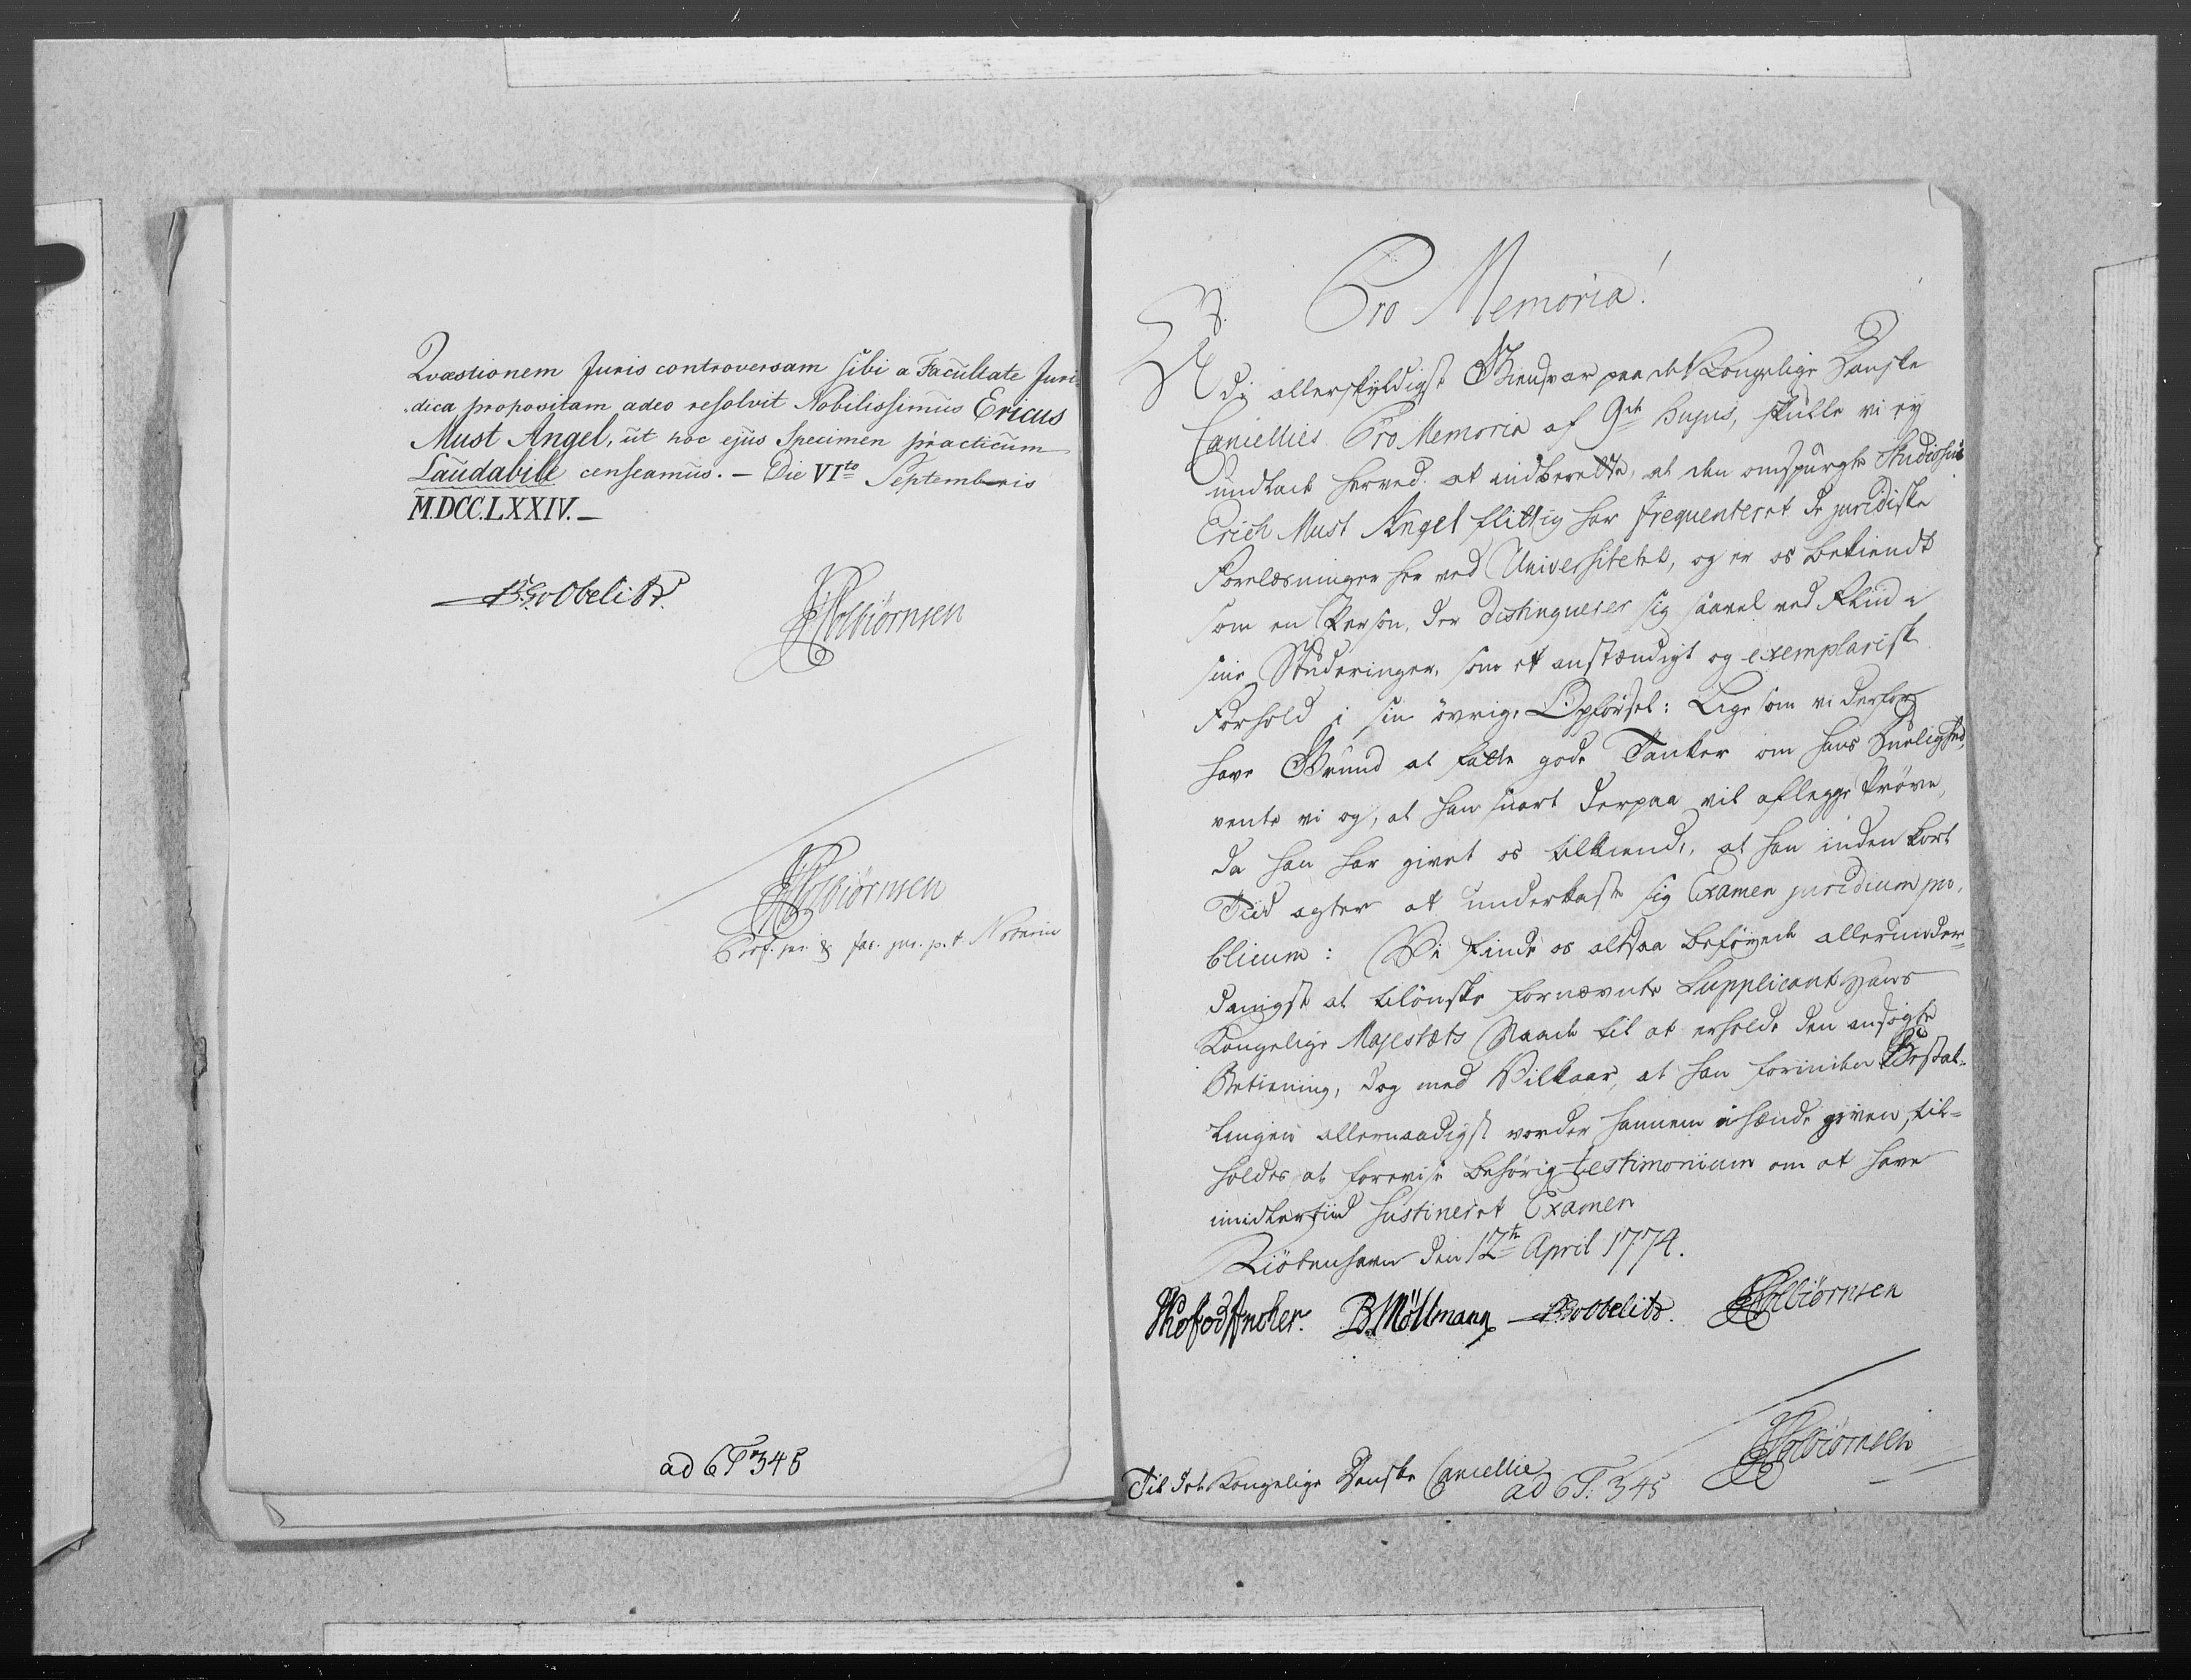 Qvæstionem Juris controversam sibi a Facultate Juri-
dica propositam adeo resolvit Nobilissimus Ericus
Must Angel, ut hoc ejus Specimen practicum
Laudabile censeamus. – Die VIto Septembris
M.DCC.LXXIV. –
B: G: Obelitz.
Colbiørnsen
Colbiørnsen
Prof. jur. & fac. jur. p. t. Notarius
ad 6 T 345
Pro Memoria!
Udi allerskyldigst Giensvar paa det Kongelige Danske
Cancellies Pro Memoria af 9de hujus, skulle vi ey
undlade herved at indberette, at den omspurgte Studiosus
Erich Must Angel flittig har frequenteret de juridiske
Forelæsninger her ved Universitetet, og er os bekiendt
som en Person, der distinguerer sig saavel ved Fliid i
sine Studeringer, som et anstændigt og exemplarisk
Forhold i sin övrige Opförsel: Lige som vi derfor
have Grund at fatte gode Tanker om hans Duelighed,
vente vi og, at han snart derpaa vil aflegge Pröve,
da han har givet os tilkiende, at han inden kort
Tiid agter at underkaste sig Examen juridicum pu-
blicum: Vi finde os altsaa beföyede allerunder-
danigst at tilönske fornævnte Supplicant Hans
Kongelige Majestæts Naade til at erholde den ansögte
Betiening, dog med Vilkaar, at han forinden Bestal-
lingen allernaadigst vorder hannem i hænde given, til-
holdes at forevise behörig testimonium om at have
imidlertiid sustineret Examen
Kiöbenhavn den 12te April 1774.
Kofod Ancher. B. Möllmann B: G: Obelitz. Colbiørnsen
Colbiørnsen
Til det Kongelige Danske Cancellie
ad 6 T: 345